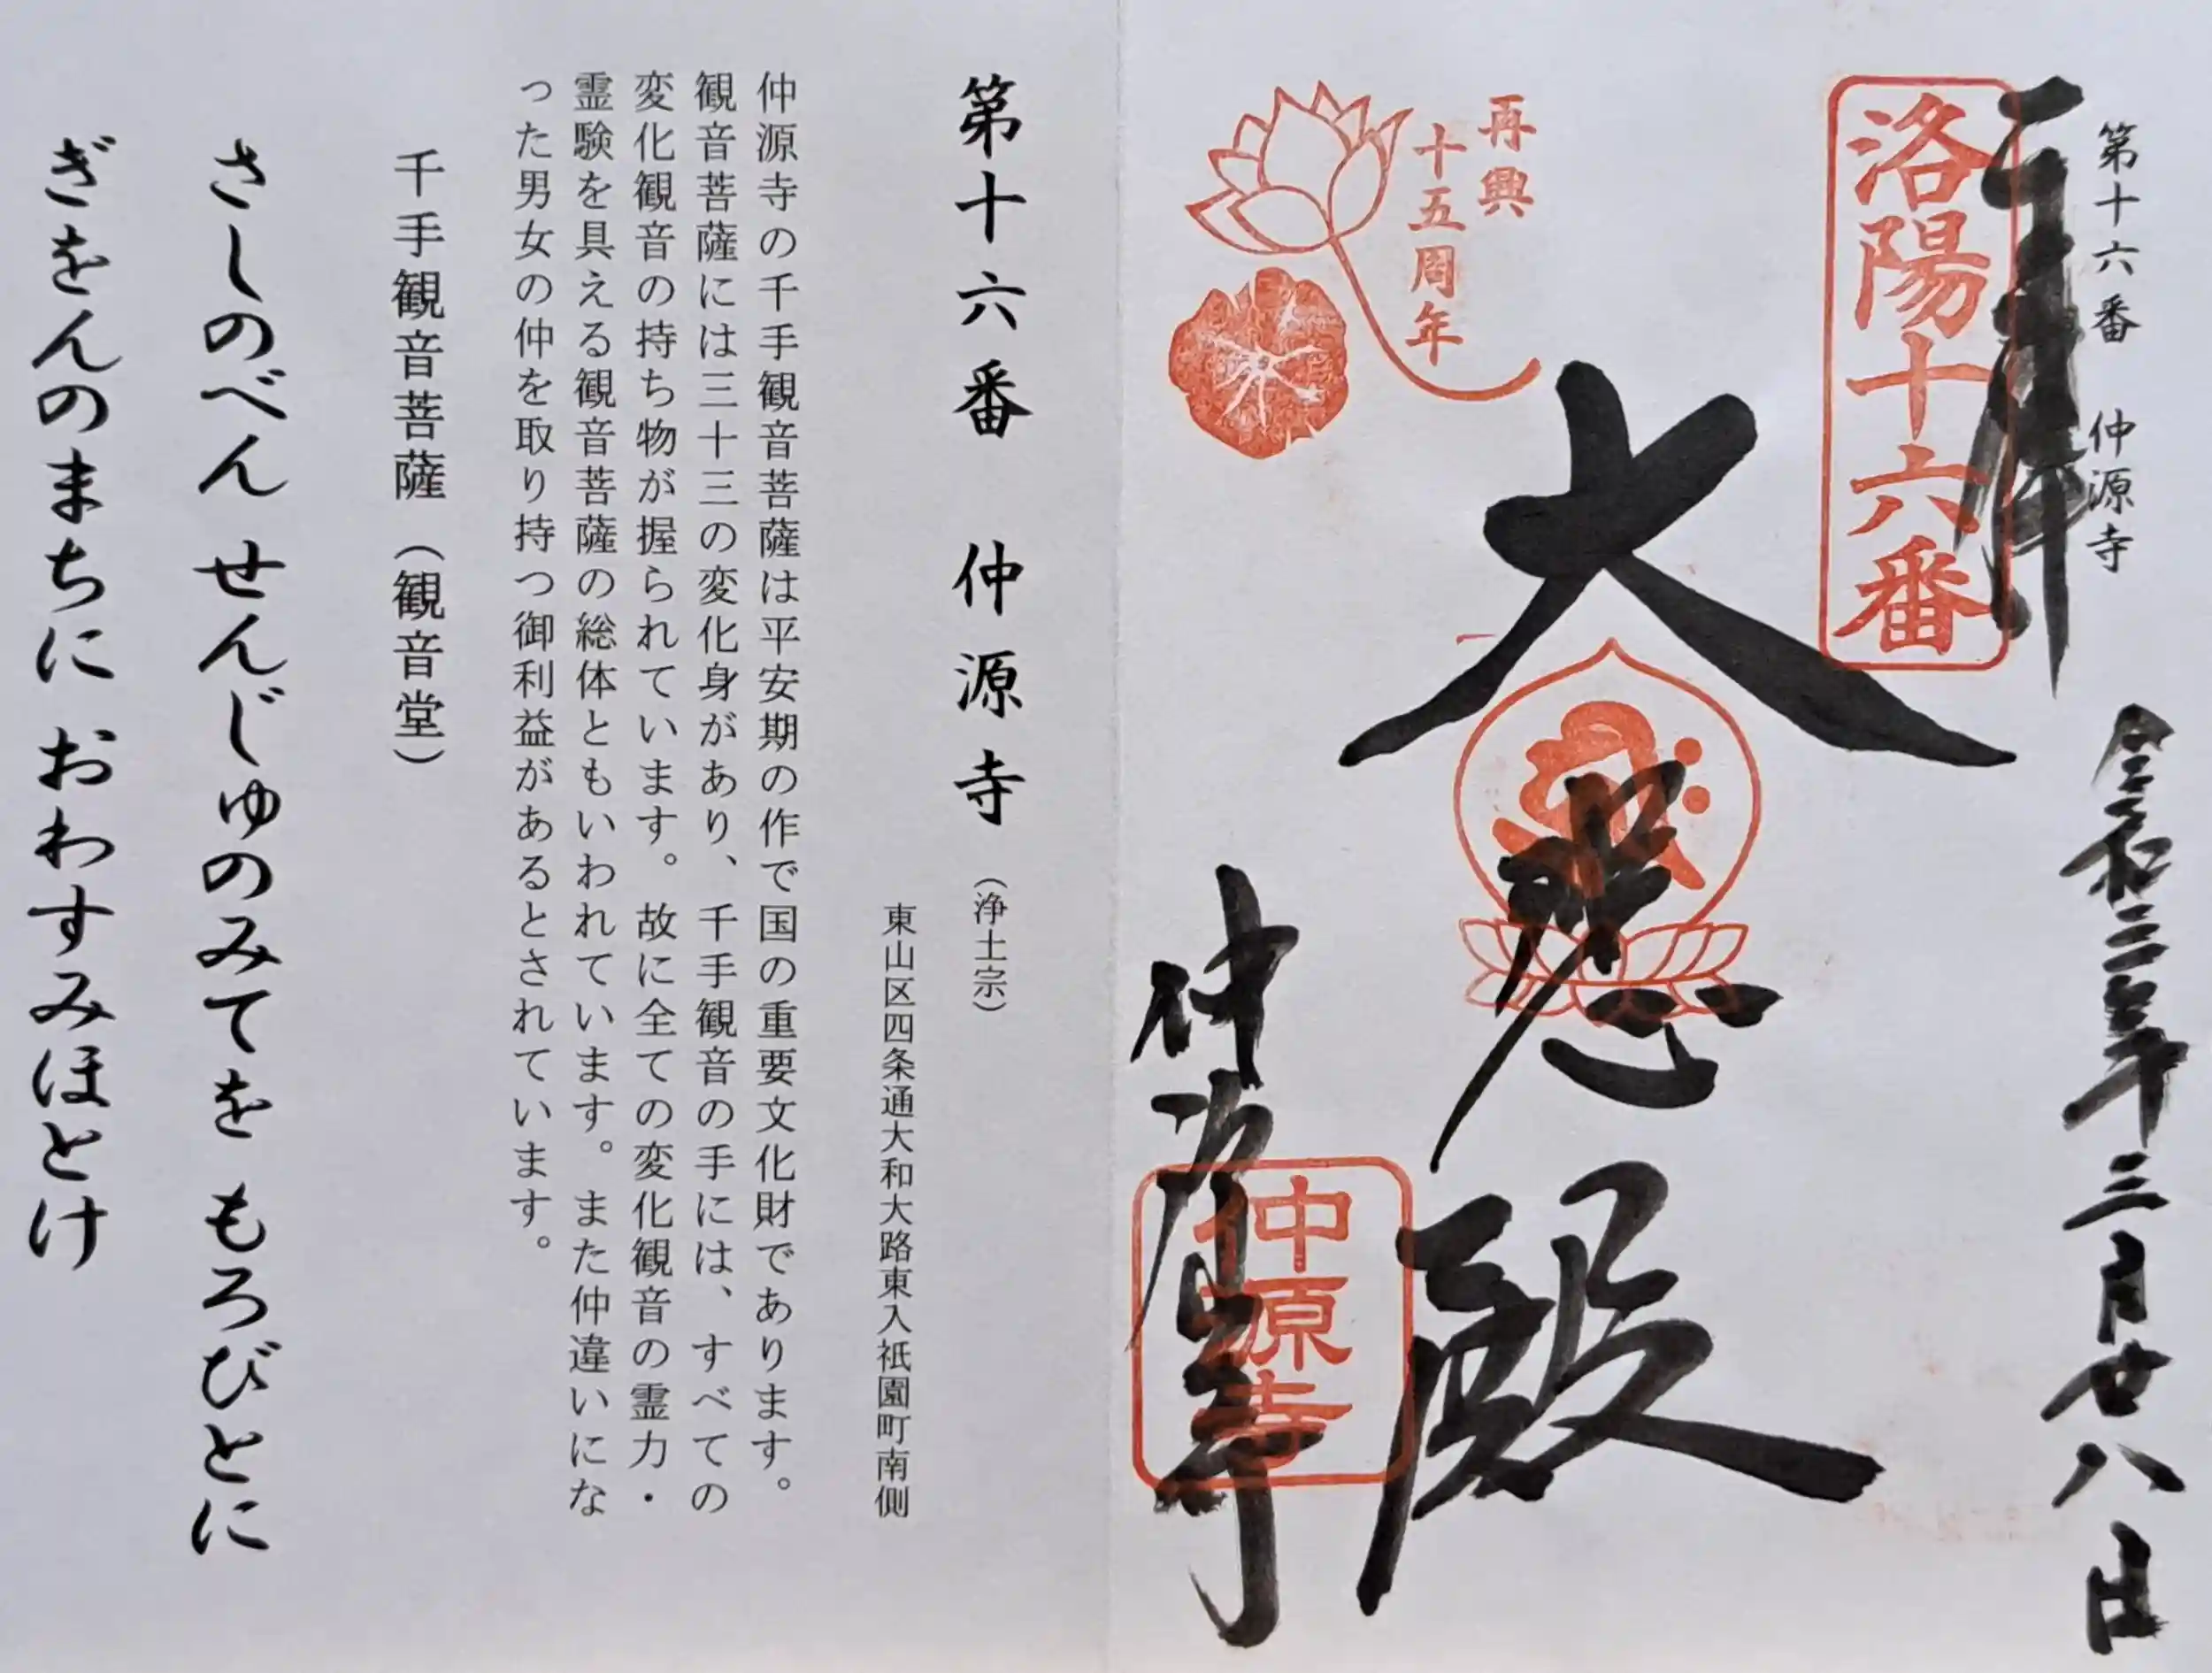 第十六番 仲源寺
奉拝
令和三年三月廿八日
洛陽十六番
大悲殿
再興
十五周年
仲源寺
仲源寺
第十六番 仲源寺（浄土宗）
東山区四条通大和大路東入祇園町南側
仲源寺の千手観音菩薩は平安期の作で国の重要文化財であります。
観音菩薩には三十三の変化身があり、千手観音の手には、すべての
変化観音の持ち物が握られています。故に全ての変化観音の霊力・
霊験を具える観音菩薩の総体ともいわれています。また仲違いにな
った男女の仲を取り持つ御利益があるとされています。
千手観音菩薩（観音堂）
さしのべん せんじゅのみてを もろびとに
ぎをんのまちに おわすみほとけ